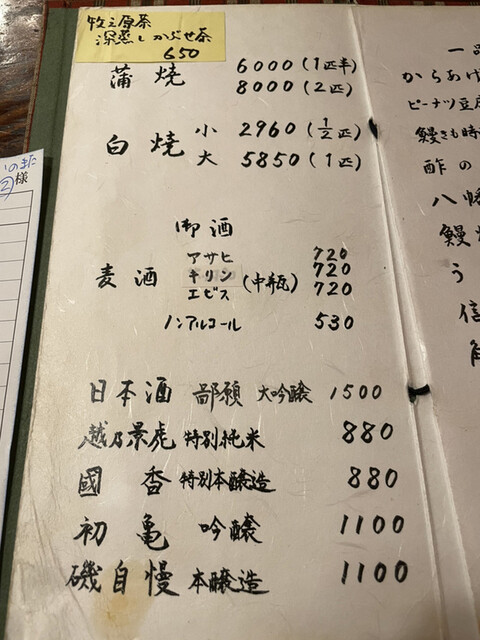 牧之原茶
深蒸しかぶせ茶
650
蒲焼 6000(1匹半)
8000(2匹)
白焼 小 2960(1/2匹)
大 5850(1匹)
御酒
麦酒 アサヒ 720
キリン (中瓶) 720
ヱビス 720
ノンアルコール 530
日本酒 鄙願 大吟醸 1500
越乃景虎 特別純米 880
國香 特別本醸造 880
初亀 吟醸 1100
磯自慢 本醸造 1100
一品
からあげ
ピーナツ豆腐
鰻きも時
酢の
八幡
鰻
う
信
様